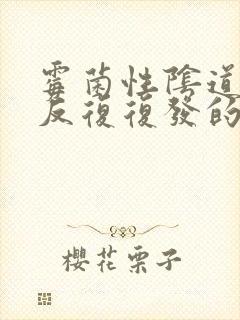 霉菌性陰道
反復復發的
櫻花栗子